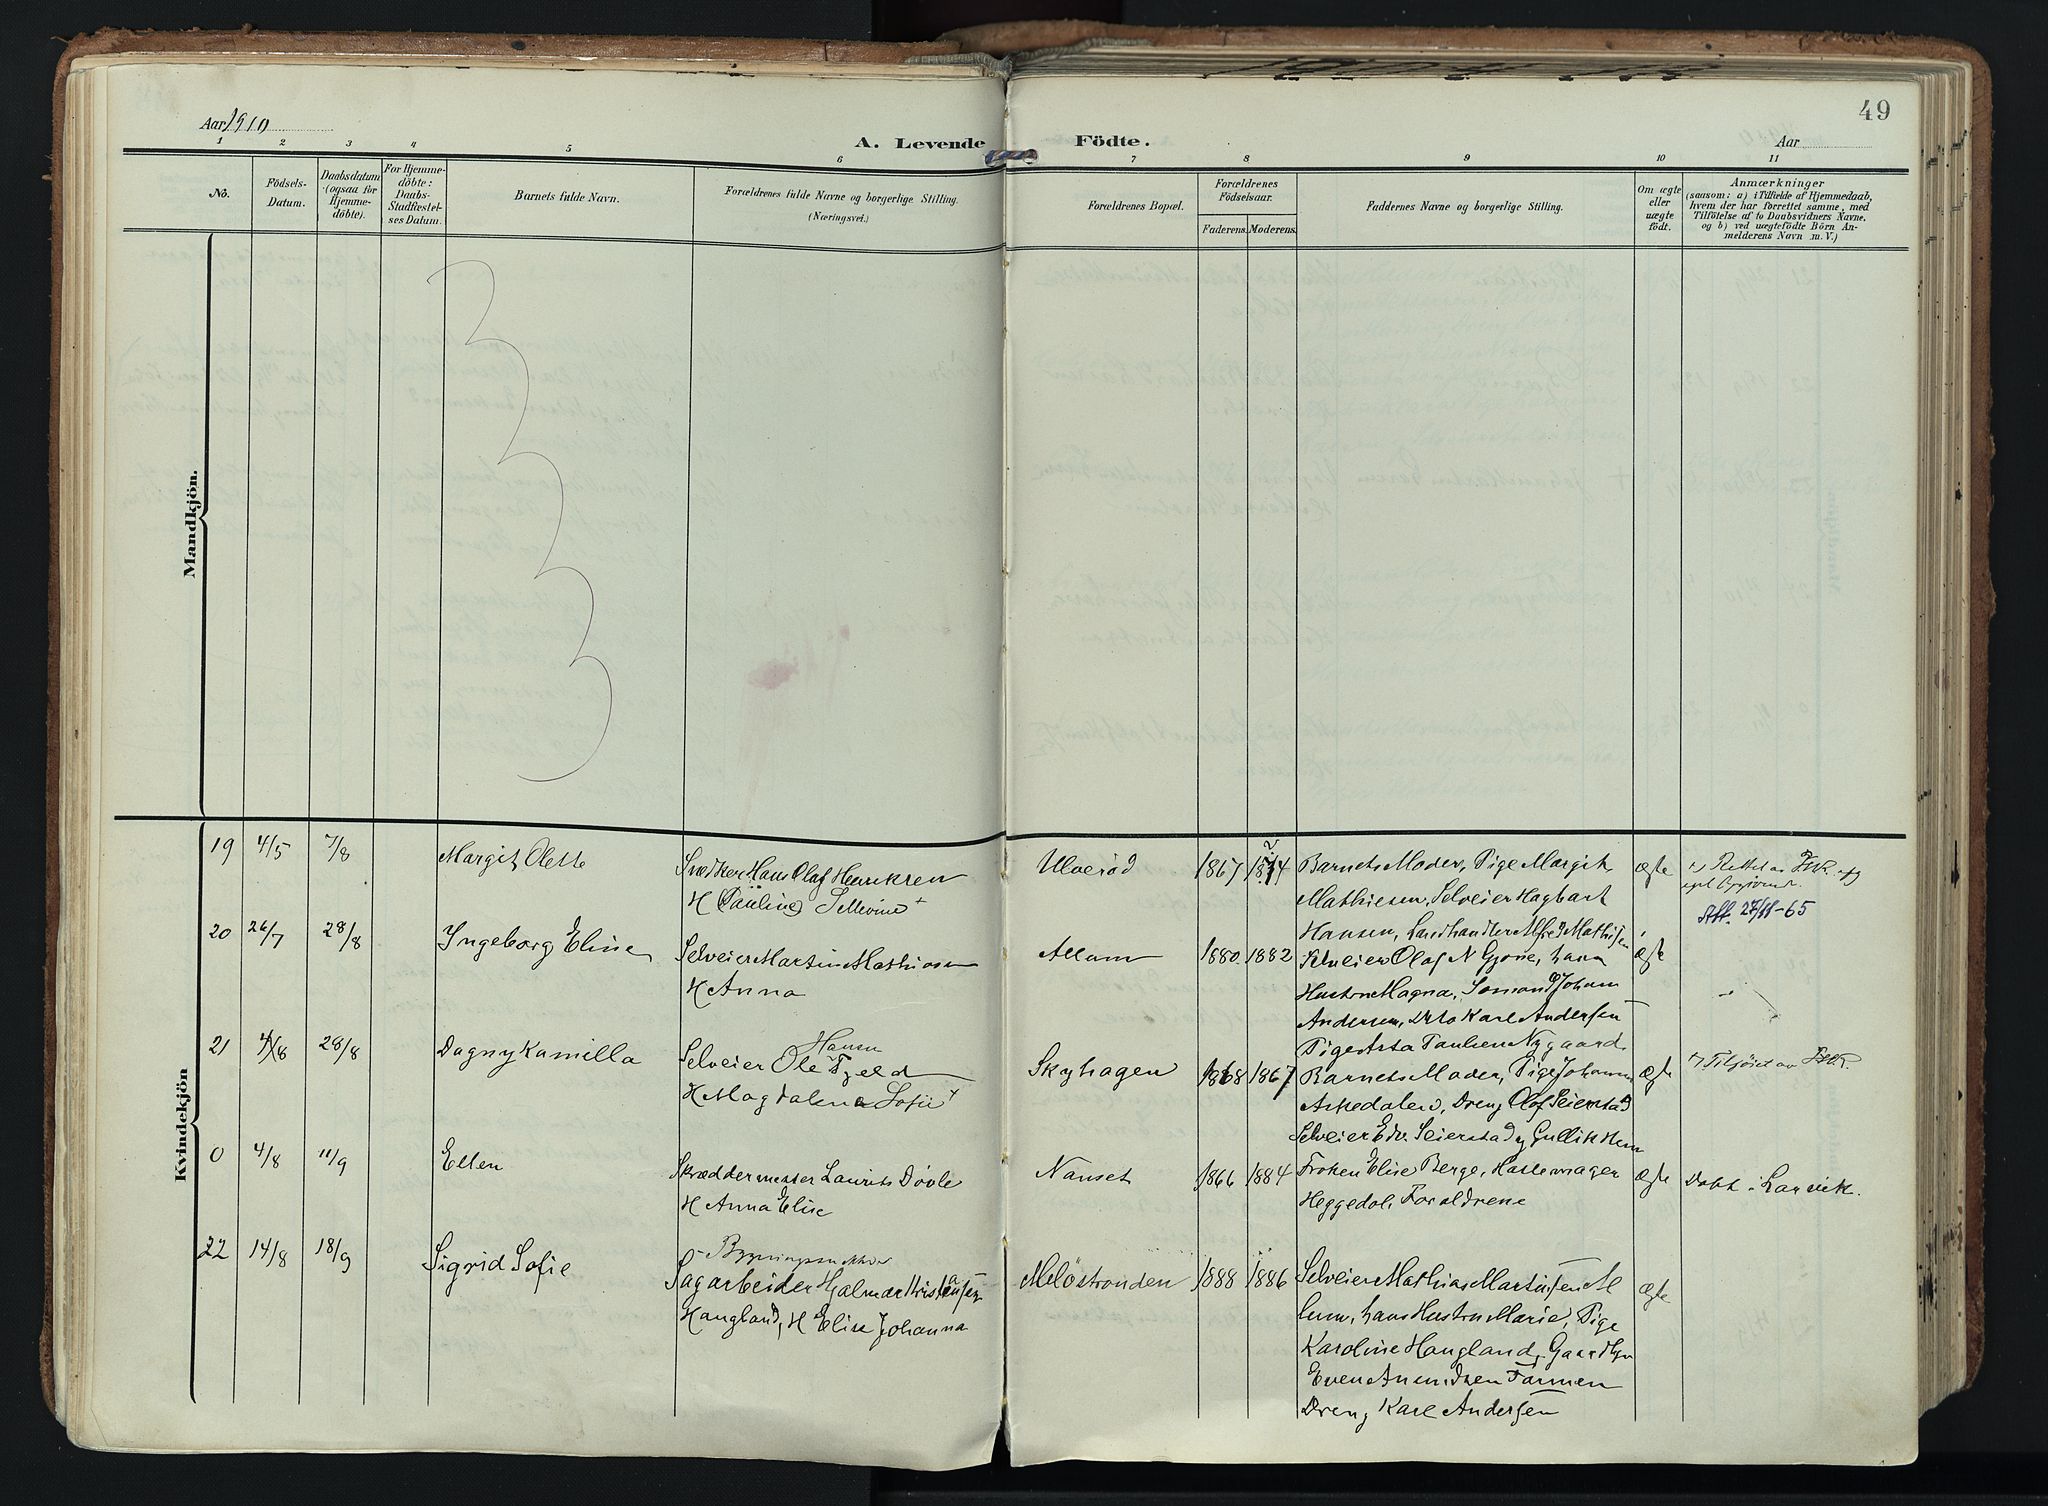 49
Aar 1910
A. Levende Födte.
Aar
1 2 3 4 5 6 7 8 9 10 11
No.
Födsels-
Datum.
Daabsdatum
(ogsaa for
Hjemme-
döbte).
For Hjemme-
döbte:
Daabs-
Stadfæstel-
ses Datum.
Barnets fulde Navn.
Forældrenes fulde Navne og borgerlige Stilling.
(Næringsvei.)
Forældrenes Bopæl.
Forældrenes
Födselsaar.
Faderens. Moderens.
Faddernes Navne og borgerlige Stilling.
Om ægte
eller
uægte
födt.
Anmærkninger
(saasom: a) i Tilfælde af Hjemmedaab,
hvem der har forrettet samme, med
Tilföielse af to Daabsvidners Navne.
og b) ved uægtefödte Börn An-
melderens Navn m. V.)
Mandkjön.
Kvindekjön
19 4/5 7/8 Margit Olette
Snedker Hans Olaf Henriksen
H Pauline Sellevine +
Ulverød
1867 1874
Barnets Moder, Pige Margit
Mathiesen, Selveier Hagbart
Hansen, Landhandler Alfred Mathisen
ægte
Rettet av
Att. 27/11-65
20 26/7 28/8 Ingeborg Eline
Selveier Martin Mathiasen
H Anna
Allum
1880. 1882
Selveier Olaf N Gjone, hans
Hustru Magna, Sømand Johan
Andersen, Ditto Karl Andersen
Pige Asta Paulsen Nygaard
ægte
21 4/8 28/8 Dagny Kamilla
Hansen
Selveier Ole Fjeld
H Magdalena Sofie +
Skyhagen
1868 1867
Barnets Moder, Pige Johanne
Askedalen, Dreng Olaf Seierstad
Selveier Edv. Seierstad, Gullik Hem
ægte
Tilføiet av
0 4/8 11/9 Ellen
Skreddermester Laurits Døvle
H Anna Elise
Nanset
1866 1884
Frøken Elise Berge, Hattemager
Heggedal, Forældrene
ægte
Døbt i Larvik.
22 14/8 18/9 Sigrid Sofie
Bygningssnekker
Sagarbeider Hjalmar Kristiansen
Haugland, H Elise Johanna
Meløstranden
1888 1886
Selveier Mathias Martinsen Al
lum, hans Hustru Marie, Pige
Karoline Haugland, Gaardbgr
Even Anundsen Farmen
Dreng Karl Andersen
ægte